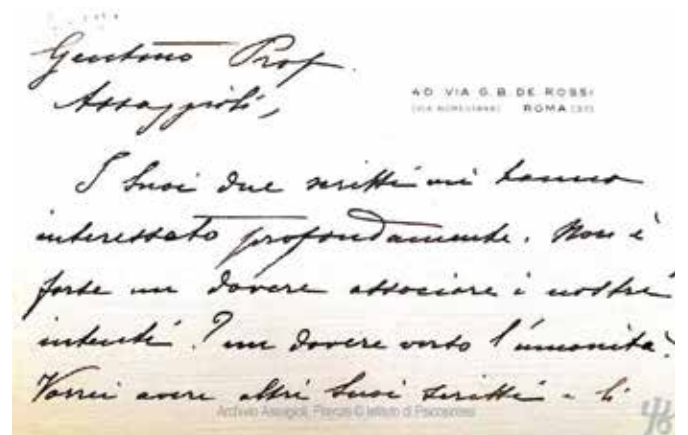 Gentmo Prof.
Assagioli,
40 VIA G. B. DE ROSSI
(VIA NOMENTANA) ROMA (37)
I Suoi due scritti mi hanno
interessato profondamente. Non è
forse un dovere associare i nostri
intenti? un dovere verso l'umanità?
Vorrei avere altri Suoi scritti e li
Archivio Assagioli, Firenze © Istituto di Psicosintesi